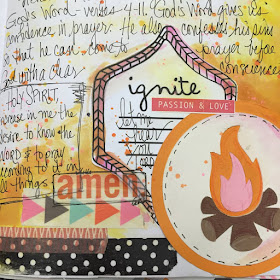 God's Word - verses 4-11 God's Word gives us
confidence in prayer. He also confesses his sins
so that he can come to prayer before
God with a clear conscience
HOLY SPIRIT,
increase in me the
desire to know the
WORD & to pray
according to it in
all things
ignite
PASSION & LOVE
let me
hear
your
amen